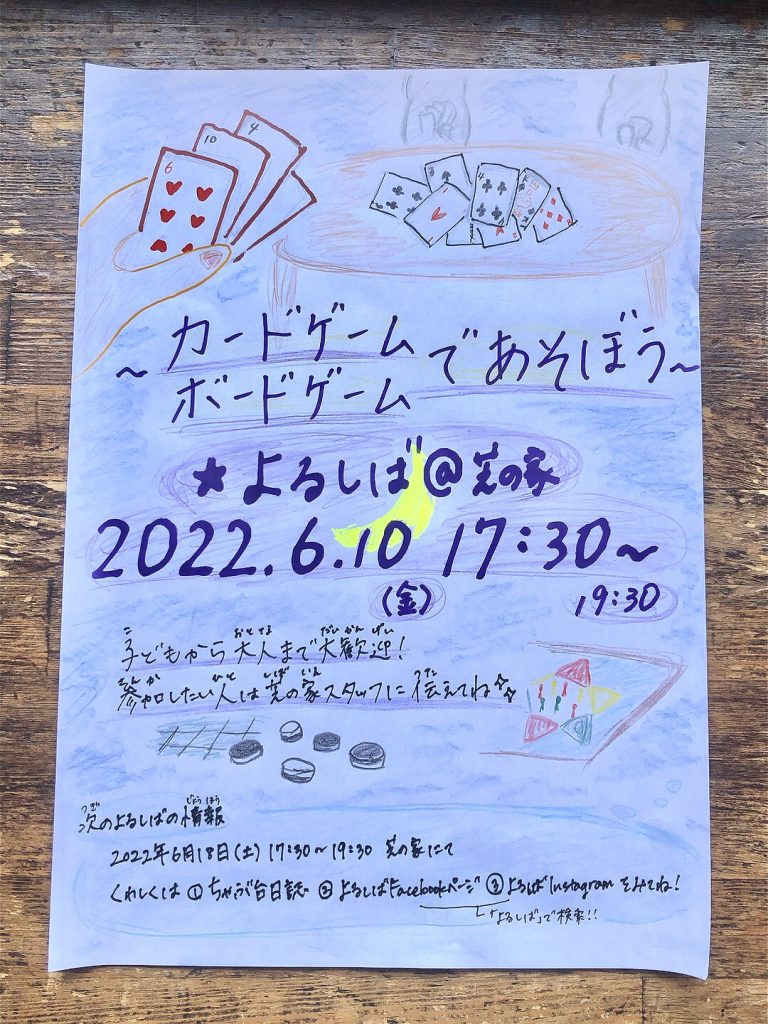 6
10
4
～カードゲーム
ボードゲーム
であそぼう～
★よるしば@芝の家
2022.6.10 17:30～
(金) 19:30
子どもから大人まで大歓迎！
参加したい人は芝の家スタッフに伝えてね☆☆
次のよるしばの情報
2022年6月18日(土) 17:30～19:30 芝の家にて
くわしくは ①ちゃぶ台日誌 ②よるしばFacebookページ ③よるしばInstagram をみてね！
「よるしば」で検索!!